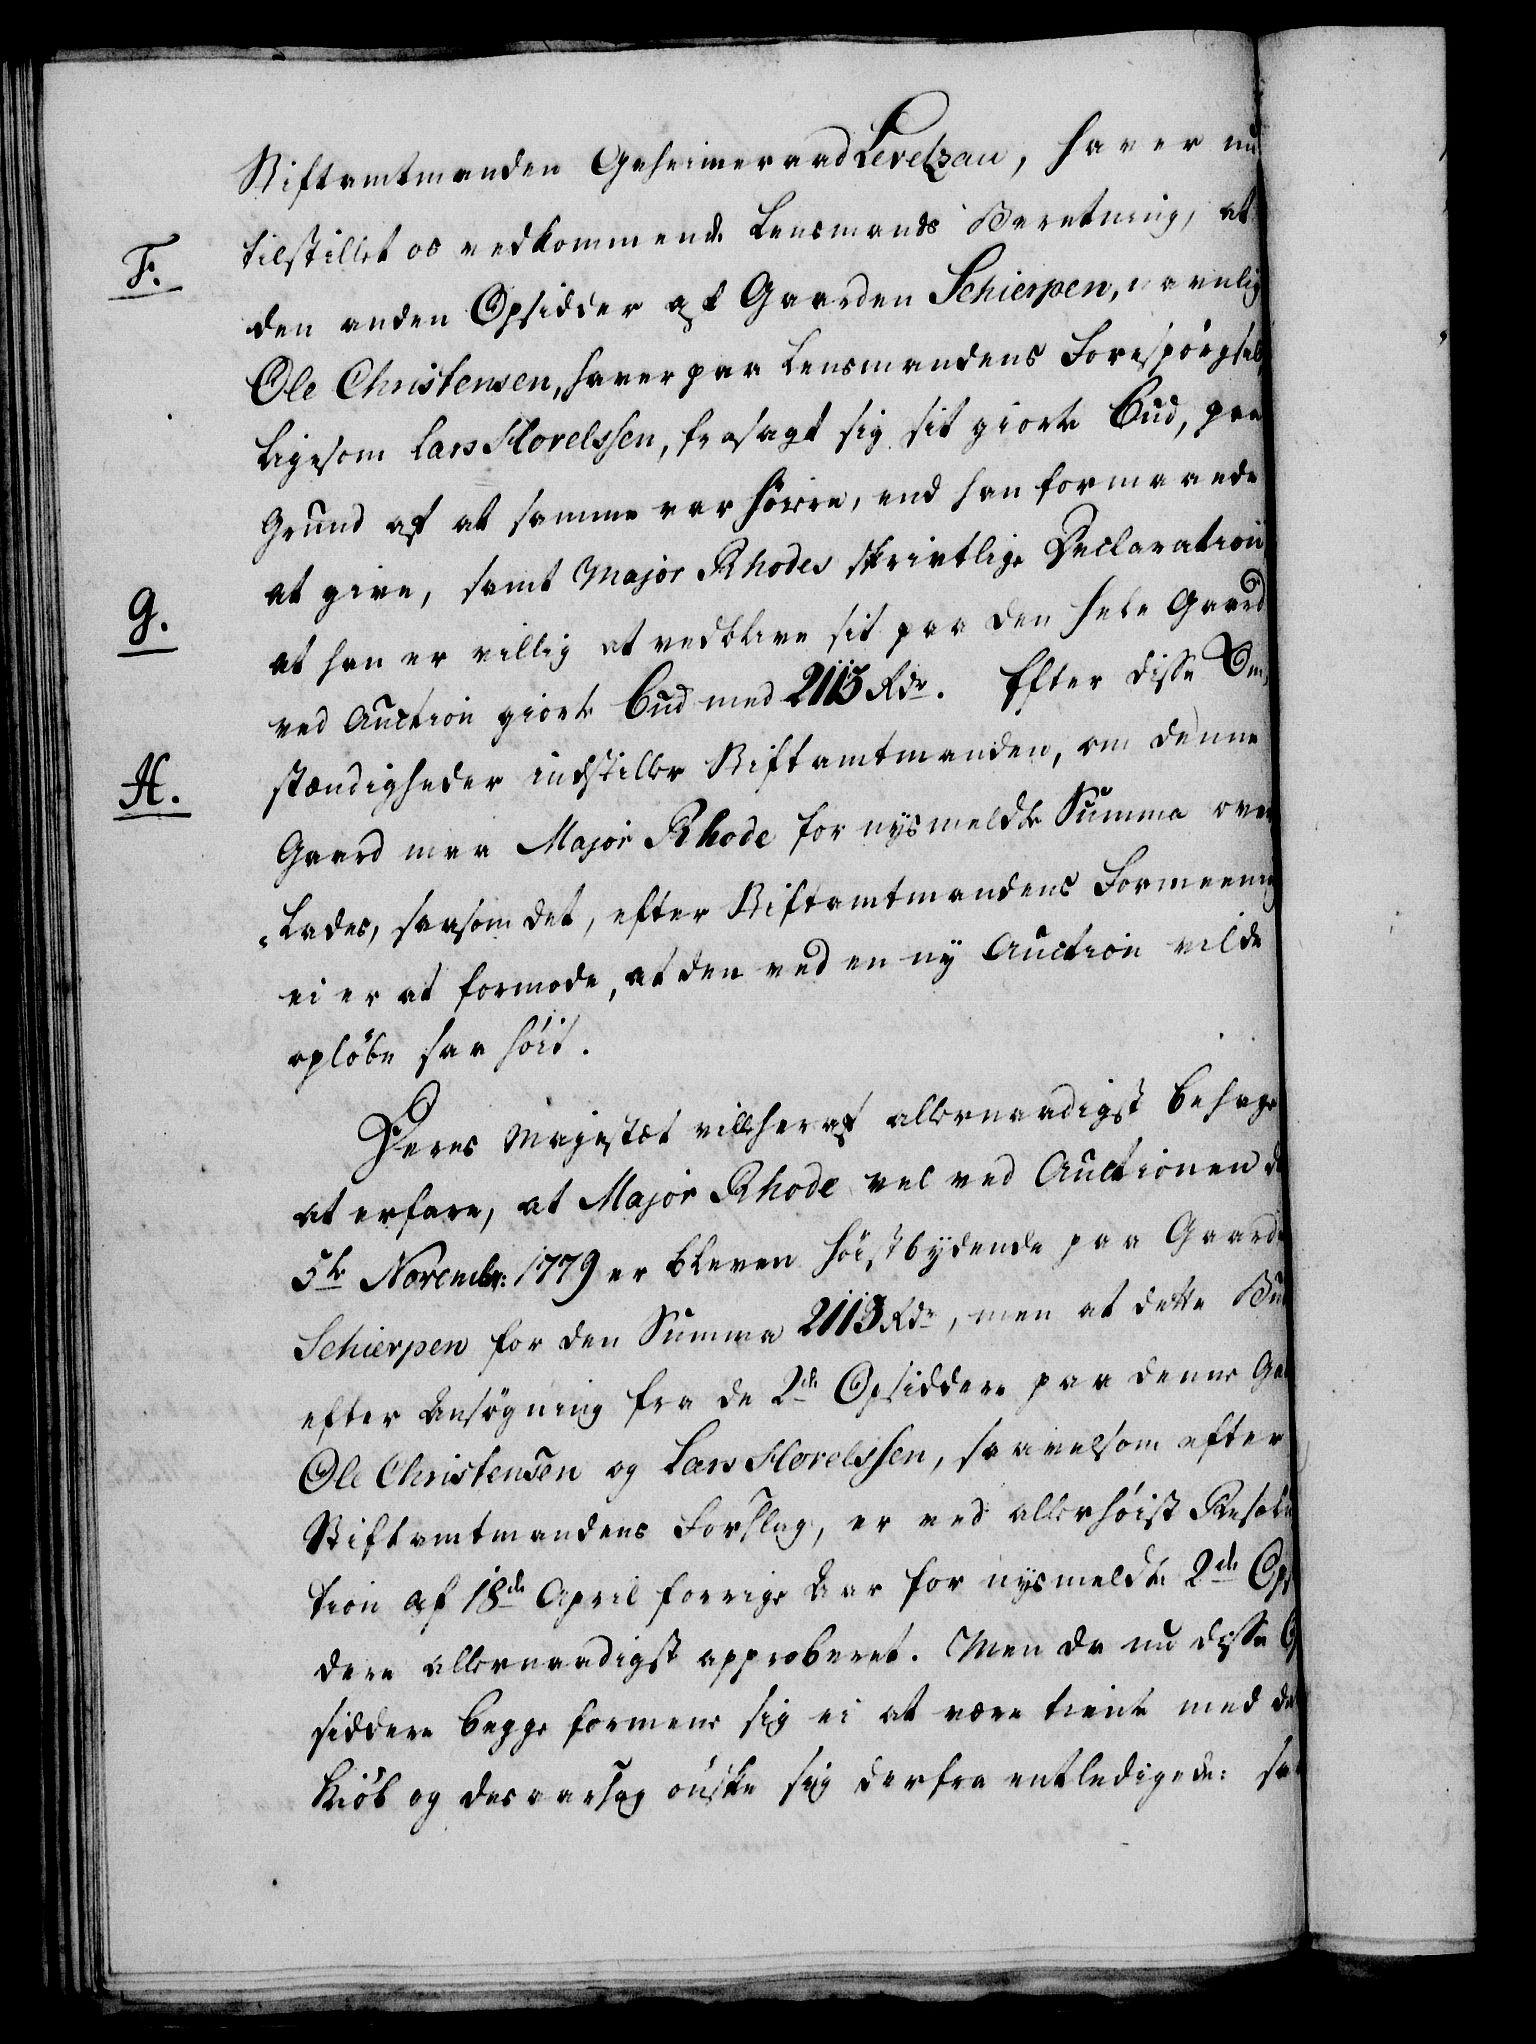 Stiftamtmanden Geheimeraad Levetzau, haver nu
F.
tilstillet os vedkommende Lensmands Beretning, at
den anden Opsidder af Gaarden Schierpen, navnlig
Ole Christensen, haver paa Lensmandens Forespørgsel,
ligesom Lars Horelssen, frasagt sig sit giorte Bud, paa
Grund af at samme var høiere, end han formaaede
G.
at give, samt Major Rhodes skrivtlige Declaration
at han er villig at vedblive sit paa den hele Gaard
ved Auction giorte Bud med 2113 Rdr. Efter disse Om„
H.
stændigheder indstiller Stiftamtmanden, om denne
Gaard maa Major Rhode for nysmeldte Summa over
„lades, saasom det, efter Stiftamtmandens Formeening
ei er at formode, at den ved en ny Auction vilde
opløbe saa høit.
Deres Majestæt vil heraf allernaadigst behage
at erfare, at Major Rhode vel ved Auctionen d
5te Novembr: 1779 er bleven høistbydende paa Gaarde
Schierpen for den Summa 2113 Rdr, men at dette Bud
efter Ansøgning fra de 2de Opsiddere paa denne Ga
Ole Christensen og Lars Horelssen, saavelsom efter
Stiftamtmandens Forslag, er ved allerhøist Resolu
tion af 18de April forrige Aar for nysmeldte 2de Op
dere allernaadigst approberet. Men da nu disse O
siddere begge formene sig ei at være tient med de
Kiøb og desaarsag ønske sig derfra entledigede: saa